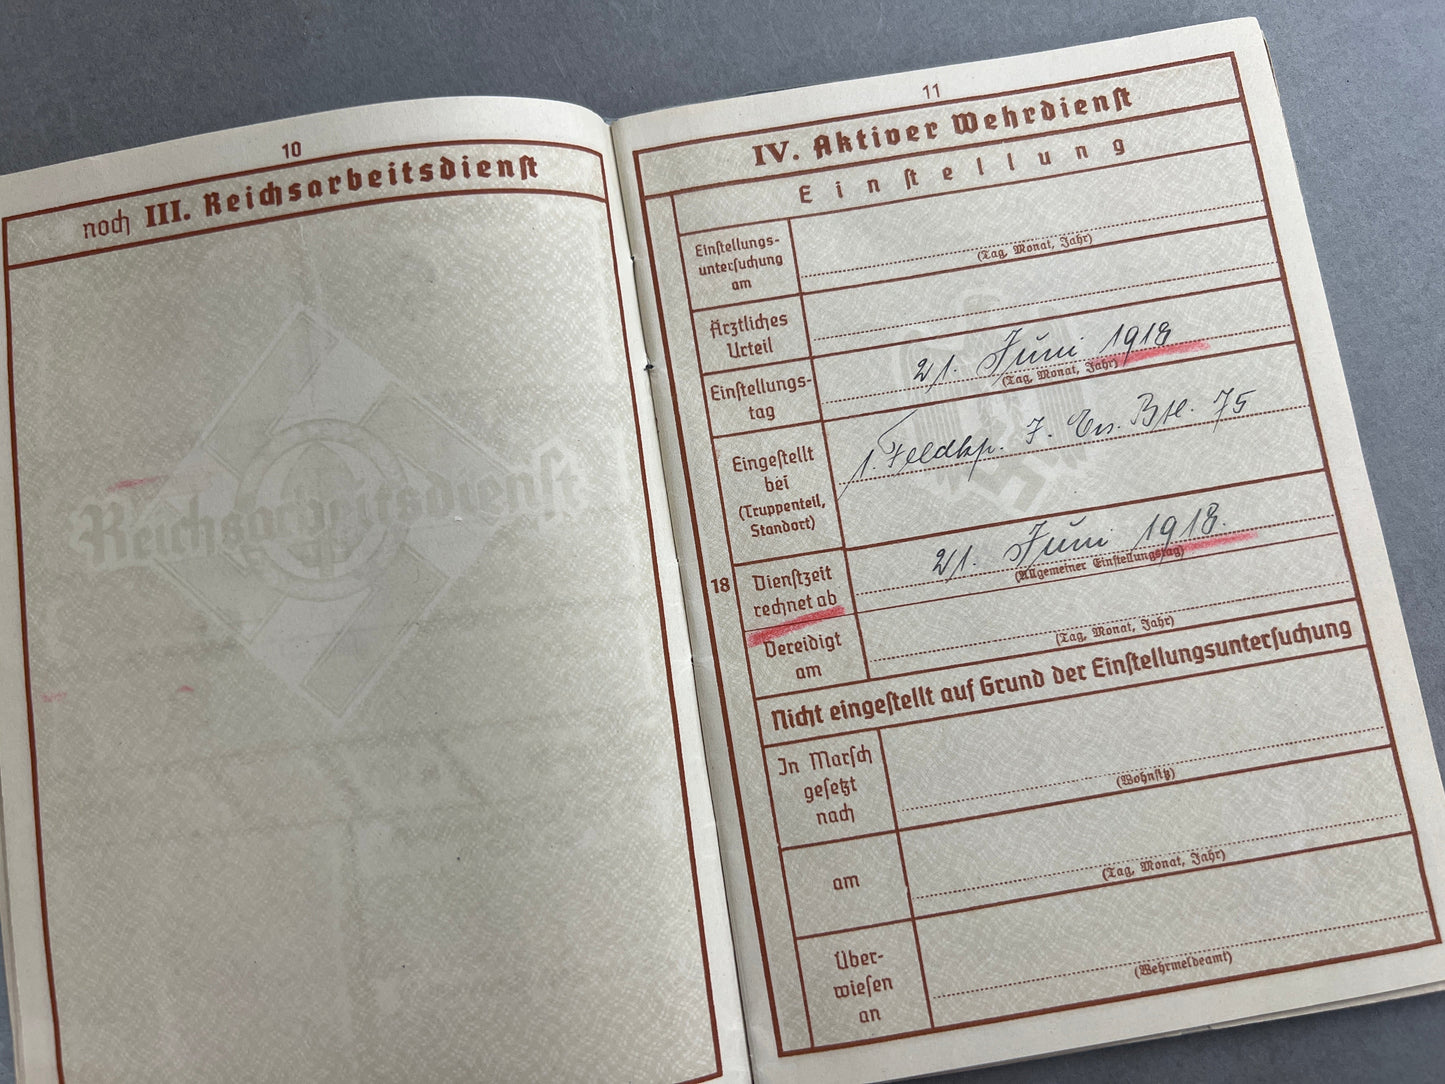 10
noch III. Reichsarbeitsdienst
Reichsarbeitsdienst
11
IV. Aktiver Wehrdienst
Einstellung
Einstellungs-
untersuchung
am
(Tag, Monat, Jahr)
Ärztliches
Urteil
Einstellungs-
tag
21. Juni 1918
(Tag, Monat, Jahr)
Eingestellt
bei
(Truppenteil,
Standort)
1. Feldkp. J. Ers. Btl. 75
18
Dienstzeit
rechnet ab
21. Juni 1918.
(Allgemeiner Einstellungstag)
Vereidigt
am
(Tag, Monat, Jahr)
Nicht eingestellt auf Grund der Einstellungsuntersuchung
In Marsch
gesetzt
nach
(Wohnsitz)
am
(Tag, Monat, Jahr)
Über-
wiesen
an
(Wehrmeldeamt)